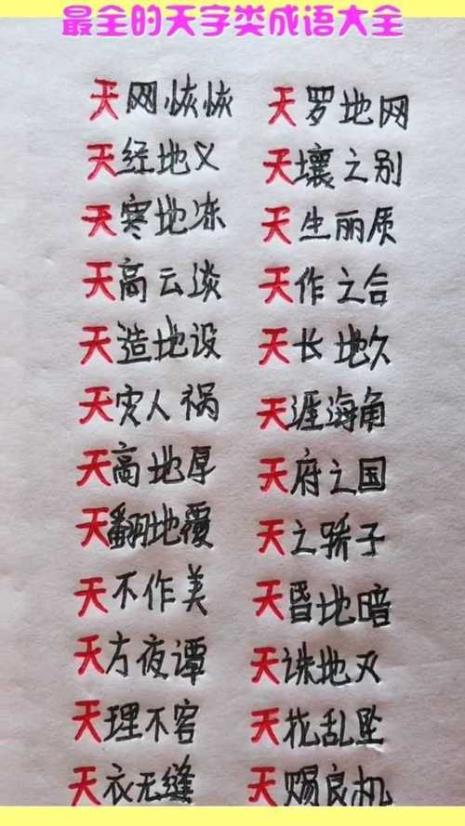 最全的天字类成语大全
天网恢恢 天罗地网
天经地义 天壤之别
天寒地冻 天生丽质
天高云淡 天作之合
天造地设 天长地久
天灾人祸 天涯海角
天高地厚 天府之国
天翻地覆 天之骄子
天不作美 天昏地暗
天方夜谭 天诛地灭
天理不容 天花乱坠
天衣无缝 天赐良机